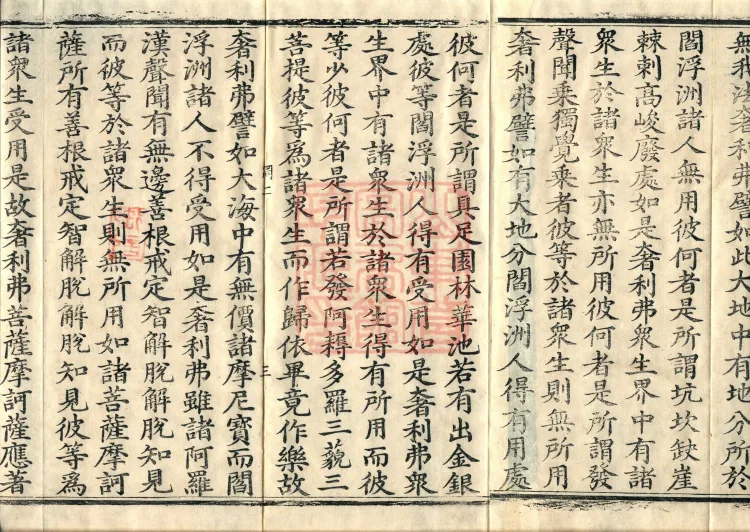 無我法奢利弗譬如此大地中有地分所於
閻浮洲諸人無用彼何者是所謂坑坎缺崖
棘刺高峻廢處如是奢利弗衆生界中有諸
衆生於諸衆生亦無所用彼何者是所謂發
聲聞乘獨覺乘者彼等於諸衆生則無所用
奢利弗譬如有大地分閻浮洲人得有用處
彼何者是所謂具足園林華池若有出金銀
處彼等閻浮洲人得有受用如是奢利弗衆
生界中有諸衆生於諸衆生得有所用而彼
等少彼何者是所謂若發阿耨多羅三藐三
菩提彼等爲諸衆生而作歸依畢竟作樂故
三
奢利弗譬如大海中有無價諸摩尼寶而閻
浮洲諸人不得受用如是奢利弗雖諸阿羅
漢聲聞有無邊善根戒定智解脫解脫知見
而彼等於諸衆生則無所用如諸菩薩摩訶
薩所有善根戒定智解脫解脫知見彼等爲
諸衆生受用是故奢利弗菩薩摩訶薩應著